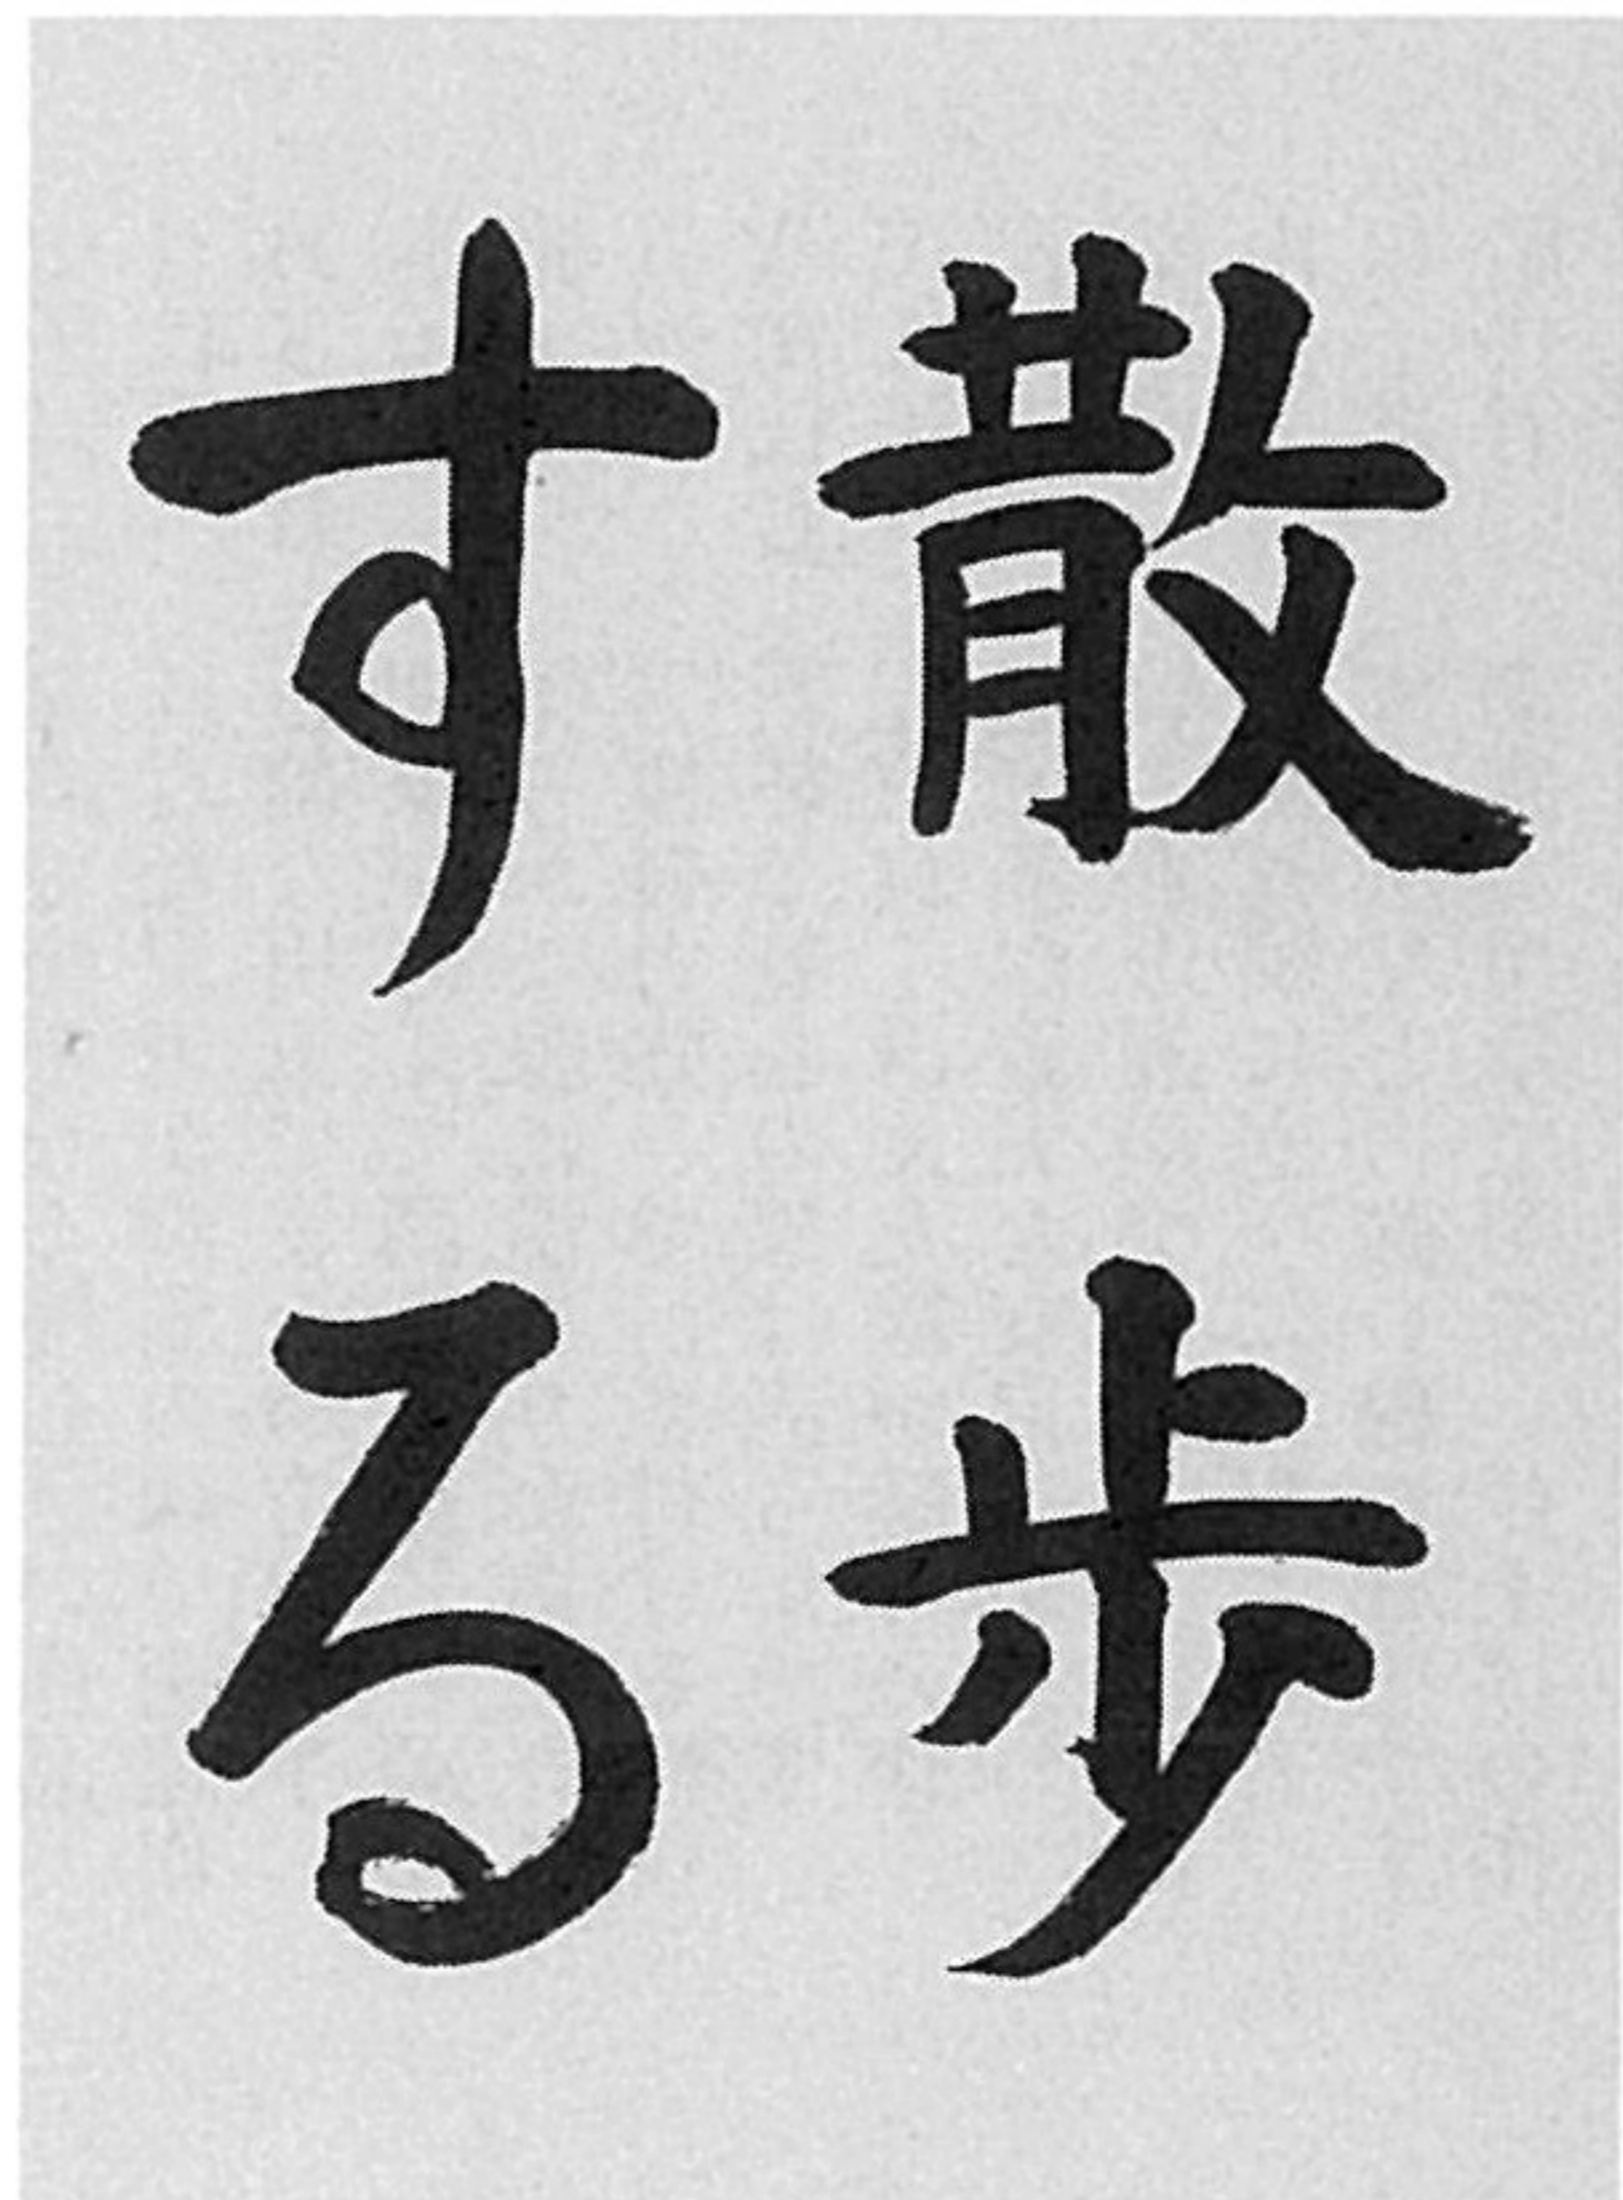 散歩
する